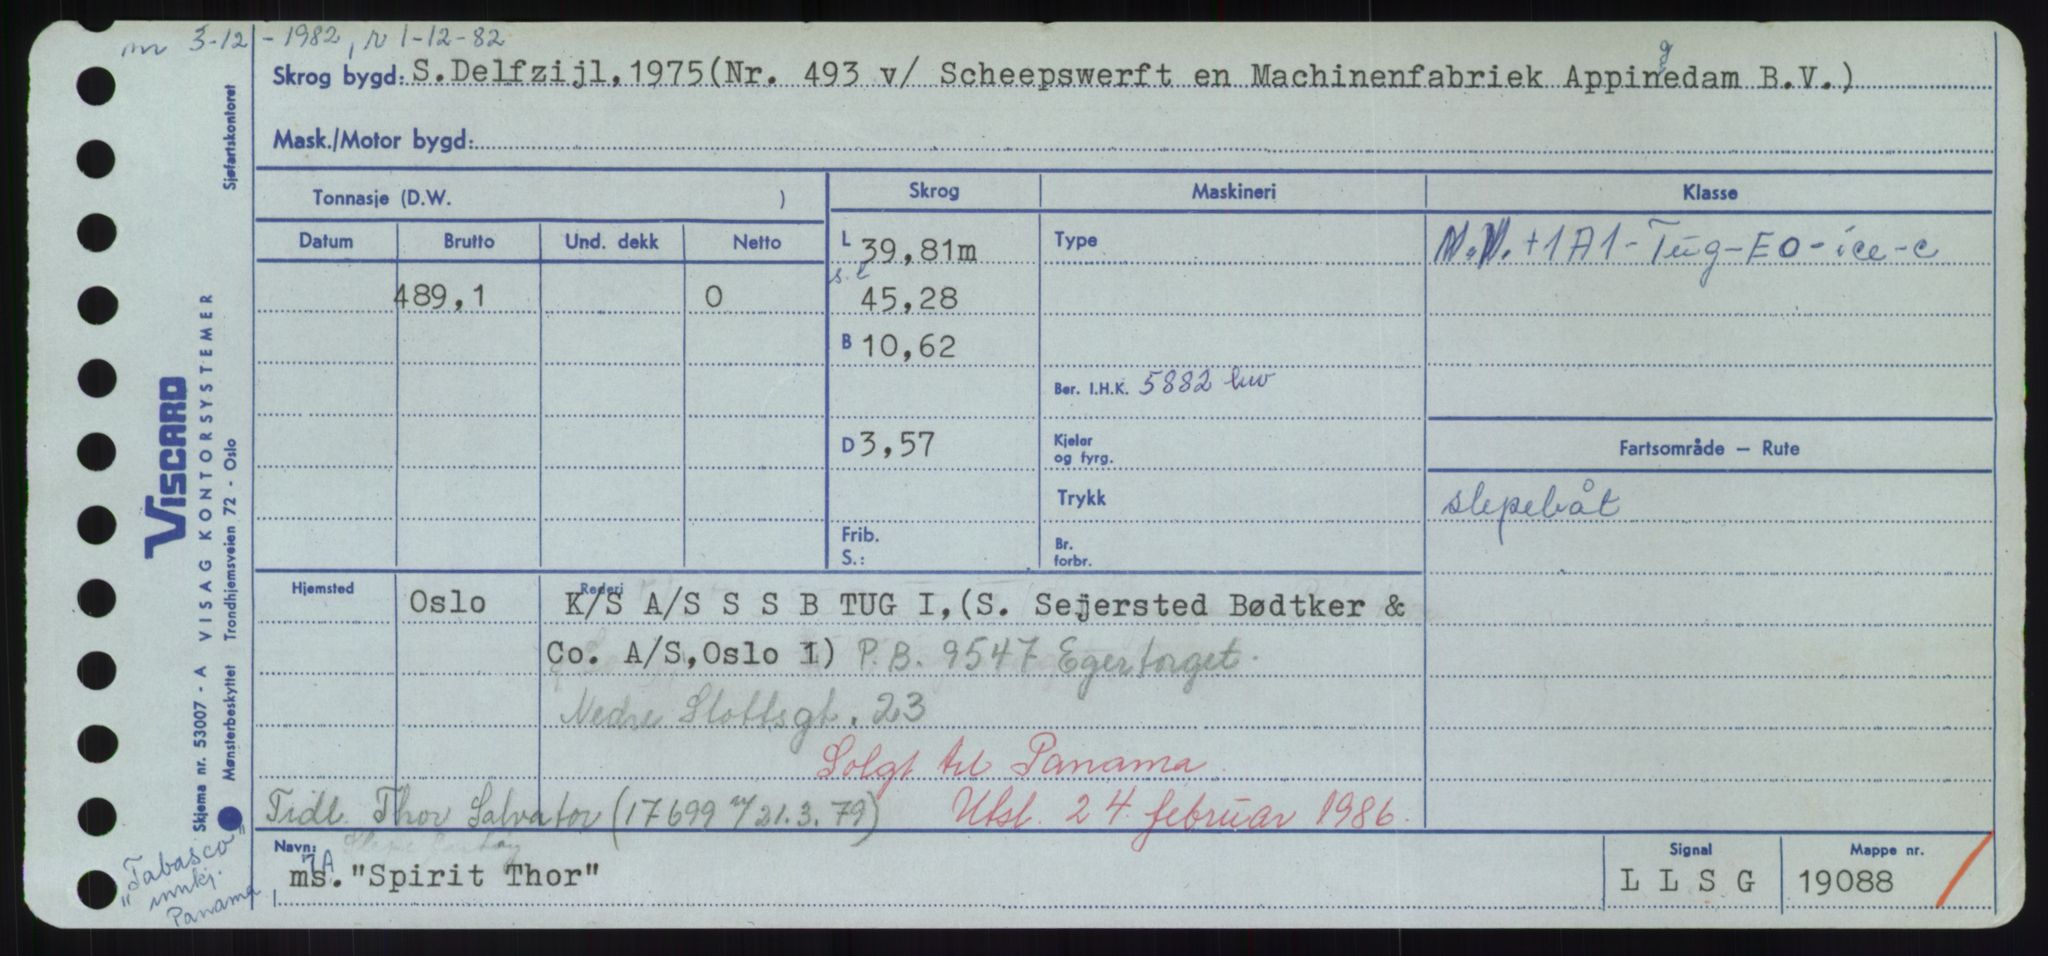 nr 3-12-1982, r 1-12-82
Skrog bygd: S.Delfzijl, 1975(Nr. 493 v/ Scheepswerft en Machinenfabriek Appingedam B.V.)
Mask./Motor bygd:
Tonnasje (D.W. ) Skrog Maskineri Klasse
Datum Brutto Und. dekk Netto L 39,81m Type N.V. +1A1-Tug-E0-ice-c
489,1 0 s.l 45,28
B 10,62
Ber. I.H.K. 5882 hw
D 3,57 Kjeler og fyrg. Fartsområde – Rute
Trykk slepebåt
Frib. S.: Br. forbr.
Hjemsted Oslo Rederi K/S A/S S S B TUG I, (S. Sejersted Bødtker &
Co. A/S, Oslo 1) P.B. 9547 Egertorget.
Nedre Slottsgt. 23
Solgt til Panama
Tidl. Thor Salvator (17699 m/21.3.79) Utsl. 24. februar 1986.
Navn: ms. "Spirit Thor" Signal L L S G Mappe nr. 19088
"Tabasco"
innkj.
Panama
Sjøfartskontoret
VISCARD
VISAG KONTORSYSTEMER
Trondhjemsveien 72 - Oslo
Skjema nr. 53007 - A
Mønsterbeskyttet